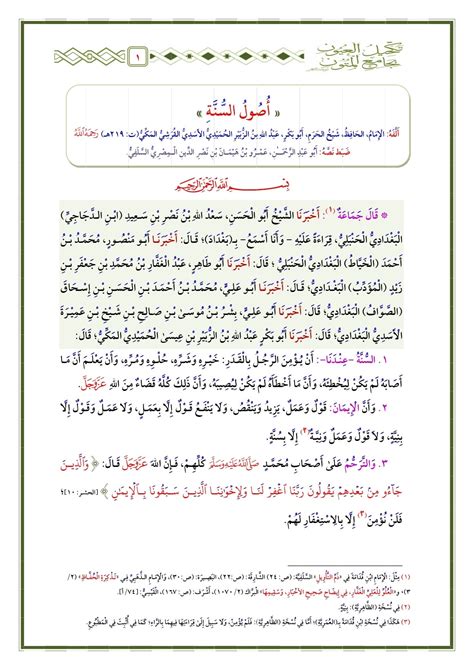 تكحيل العيون
بجامع المتون
١
« أُصُولُ السُّنَّةِ »
أَلَّفَهُ: الإِمَامُ، الحَافِظُ، شَيْخُ الحَرَمِ، أَبُو بَكْرٍ، عَبْدُ اللهِ بْنُ الزُّبَيْرِ الحُمَيْدِيُّ الأَسَدِيُّ القُرَشِيُّ المَكِّيُّ (ت: ٢١٩هـ) رَحِمَهُ اللهُ
ضَبَطَ نَصَّهُ: أَبُو عَبْدِ الرَّحْمَـٰنِ، عَمْرُو بْنُ هَيْمَانَ بْنِ نَصْرِ الدِّينِ المِصْرِيُّ السَّلَفِيُّ
بِسْمِ اللهِ الرَّحْمَنِ الرَّحِيمِ
* قَالَ جَمَاعَةٌ (١): أَخْبَرَنَا الشَّيْخُ أَبُو الْحَسَنِ، سَعْدُ اللهِ بْنُ نَصْرِ بْنِ سَعِيدٍ (ابْنِ الدَّجَاجِيِّ)
الْبَغْدَادِيُّ الْحَنْبَلِيُّ، قِرَاءَةً عَلَيْهِ - وَأَنَا أَسْمَعُ - بِـ(بَغْدَادَ)؛ قَالَ: أَخْبَرَنَا أَبُو مَنْصُورٍ، مُحَمَّدُ بْنُ
أَحْمَدَ (الْخَيَّاطُ) الْبَغْدَادِيُّ الْحَنْبَلِيُّ؛ قَالَ: أَخْبَرَنَا أَبُو طَاهِرٍ، عَبْدُ الْغَفَّارِ بْنُ مُحَمَّدِ بْنِ جَعْفَرِ بْنِ
زَيْدٍ (الْمُؤَدِّبُ) الْبَغْدَادِيُّ؛ قَالَ: أَخْبَرَنَا أَبُو عَلِيٍّ، مُحَمَّدُ بْنُ أَحْمَدَ بْنِ الْحَسَنِ بْنِ إِسْحَاقَ
(الصَّوَّافُ) الْبَغْدَادِيُّ؛ قَالَ: أَخْبَرَنَا أَبُو عَلِيٍّ، بِشْرُ بْنُ مُوسَىٰ بْنِ صَالِحِ بْنِ شَيْخِ بْنِ عَمِيرَةَ
الْأَسَدِيُّ الْبَغْدَادِيُّ؛ قَالَ: أَخْبَرَنَا أَبُو بَكْرٍ عَبْدُ اللهِ بْنُ الزُّبَيْرِ بْنِ عِيسَىٰ الْحُمَيْدِيُّ الْمَكِّيُّ؛ قَالَ:
١. السُّنَّةُ -عِنْدَنَا-: أَنْ يُؤْمِنَ الرَّجُلُ بِالْقَدَرِ: خَيْرِهِ وَشَرِّهِ، حُلْوِهِ وَمُرِّهِ، وَأَنْ يَعْلَمَ أَنَّ مَا
أَصَابَهُ لَمْ يَكُنْ لِيُخْطِئَهُ، وَأَنَّ مَا أَخْطَأَهُ لَمْ يَكُنْ لِيُصِيبَهُ، وَأَنَّ ذَلِكَ كُلَّهُ قَضَاءٌ مِنَ اللهِ عَزَّوَجَلَّ.
٢. وَأَنَّ الْإِيمَانَ: قَوْلٌ وَعَمَلٌ، يَزِيدُ وَيَنْقُصُ، وَلَا يَنْفَعُ قَوْلٌ إِلَّا بِعَمَلٍ، وَلَا عَمَلٌ وَقَوْلٌ إِلَّا
بِنِيَّةٍ، وَلَا قَوْلٌ وَعَمَلٌ وَنِيَّةٌ(٢) إِلَّا بِسُنَّةٍ.
٣. وَالتَّرَحُّمُ عَلَىٰ أَصْحَابِ مُحَمَّدٍ صَلَّى اللهُ عَلَيْهِ وَسَلَّمَ كُلِّهِمْ، فَإِنَّ اللهَ عَزَّوَجَلَّ قَالَ: ﴿ وَٱلَّذِينَ
جَآءُو مِنۢ بَعْدِهِمْ يَقُولُونَ رَبَّنَا ٱغْفِرْ لَنَا وَلِإِخْوَٰنِنَا ٱلَّذِينَ سَبَقُونَا بِٱلْإِيمَٰنِ ﴾ [الحشر: ١٠]؛
فَلَنْ نُؤْمَرَ(٣) إِلَّا بِالِاسْتِغْفَارِ لَهُمْ.
(١) مِثْلُ: الإِمَامِ ابْنِ قُدَامَةَ فِي «ذَمِّ التَّأْوِيلِ» السَّلَفِيَّةُ: (ص: ٢٤) الشَّارِقَةُ: (ص: ٢٢)، البَصِيرَةُ: (ص: ٣٠)، وَالإِمَامِ الذَّهَبِيِّ فِي «تَذْكِرَةِ الْحُفَّاظِ» (٢/
(٢) كَذَا فِي نُسْخَةِ (الظَّاهِرِيَّةِ): بِنِيَّةٍ.